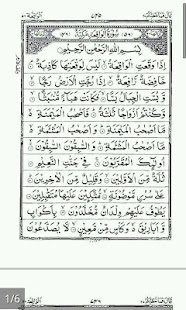 سُوْرَةُ الْوَاقِعَةِ مَكِّيَّةٌ
بِسْمِ اللهِ الرَّحْمٰنِ الرَّحِيْمِ
اِذَا وَقَعَتِ الْوَاقِعَةُ ۝ لَيْسَ لِوَقْعَتِهَا كَاذِبَةٌ ۝
خَافِضَةٌ رَّافِعَةٌ ۝ اِذَا رُجَّتِ الْاَرْضُ رَجًّا ۝
وَّبُسَّتِ الْجِبَالُ بَسًّا ۝ فَكَانَتْ هَبَآءً مُّنْۢبَثًّا ۝
وَّكُنْتُمْ اَزْوَاجًا ثَلٰثَةً ۝ فَاَصْحٰبُ الْمَيْمَنَةِ
مَآ اَصْحٰبُ الْمَيْمَنَةِ ۝ وَاَصْحٰبُ الْمَشْئَمَةِ
مَآ اَصْحٰبُ الْمَشْئَمَةِ ۝ وَالسّٰبِقُوْنَ السّٰبِقُوْنَ ۝
اُولٰٓئِكَ الْمُقَرَّبُوْنَ ۝ فِيْ جَنّٰتِ النَّعِيْمِ ۝
ثُلَّةٌ مِّنَ الْاَوَّلِيْنَ ۝ وَقَلِيْلٌ مِّنَ الْاٰخِرِيْنَ ۝
عَلٰى سُرُرٍ مَّوْضُوْنَةٍ ۝ مُّتَّكِئِيْنَ عَلَيْهَا مُتَقٰبِلِيْنَ ۝
يَطُوْفُ عَلَيْهِمْ وِلْدَانٌ مُّخَلَّدُوْنَ ۝ بِاَكْوَابٍ
وَّاَبَارِيْقَ ۙ وَكَاْسٍ مِّنْ مَّعِيْنٍ ۝ لَّا يُصَدَّعُوْنَ
1/6